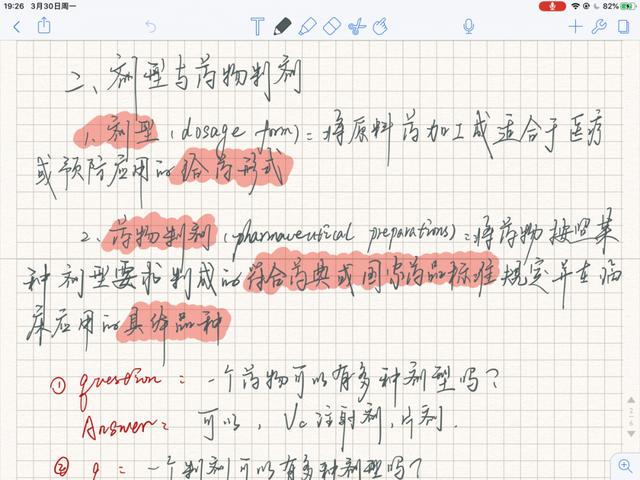 19:26 3月30日周一
82%
二、剂型与药物制剂
1. 剂型 (dosage form):将原料药加工成适合于医疗
或预防应用的给药形式
2. 药物制剂 (pharmaceutical preparations):将药物按照某
种剂型要求制成的符合药典或国家药品标准规定并在临
床应用的具体品种
① question:一个药物可以有多种剂型吗?
Answer:可以,Vc注射剂,片剂.
② q:一个制剂可以有多种剂型吗?
2/6